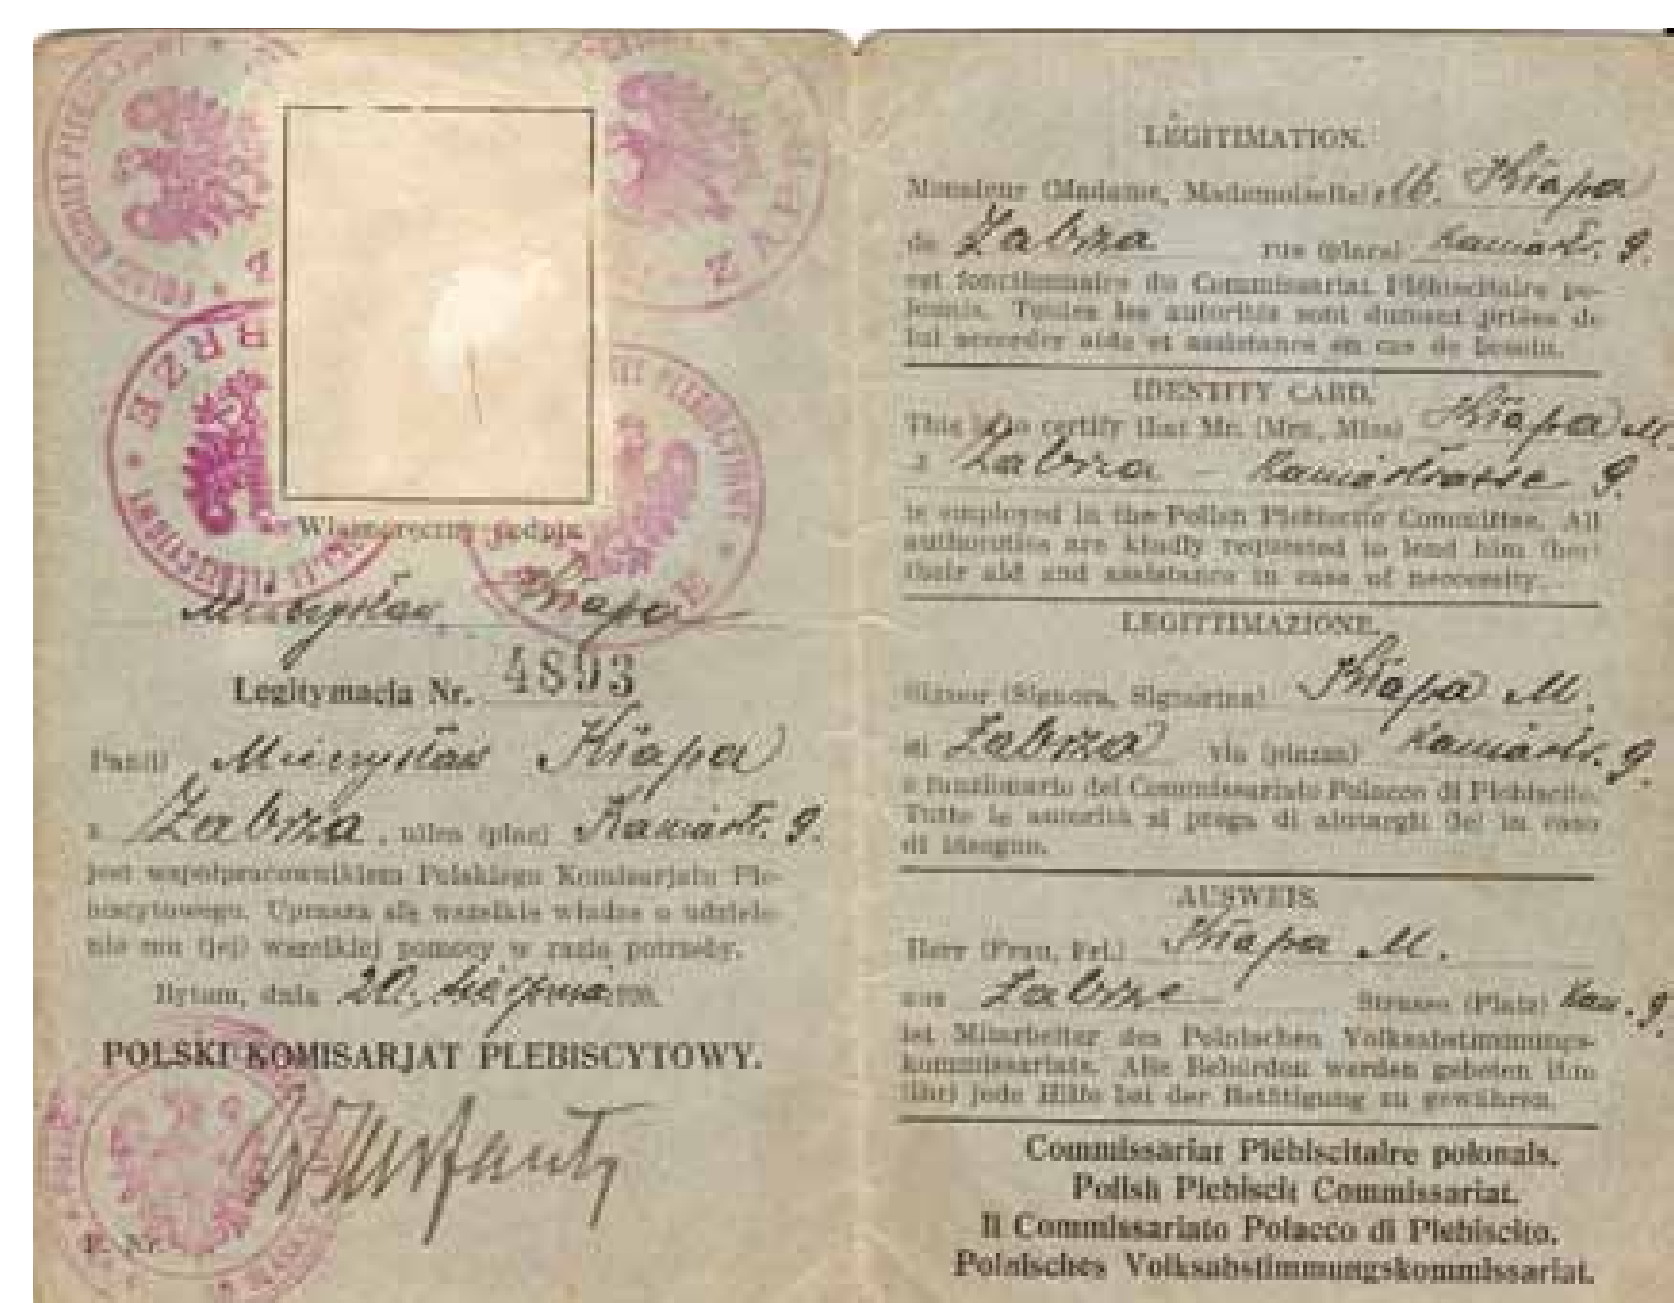 Własnoręczny podpis
Mieczysław Kłapa
Legitymacja Nr. 4893
Pan(i) Mieczysław Kłapa
z Zabrza, ulica (plac) Kaniastr. 9.
jest współpracownikiem Polskiego Komisarjatu Ple-
biscytowego. Uprasza się wszelkie władze o udziele-
nie mu (jej) wszelkiej pomocy w razie potrzeby.
Bytom, dnia 20. sierpnia 1920.
POLSKI KOMISARJAT PLEBISCYTOWY.
LÉGITIMATION.
Monsieur (Madame, Mademoiselle) Kłapa
de Zabrza rue (place) Kaniastr. 9.
est fonctionnaire du Commissariat Plébiscitaire po-
lonais. Toutes les autorités sont dument priées de
lui accorder aide et assistance en cas de besoin.
IDENTITY CARD.
This is to certify that Mr. (Mrs., Miss) Kłapa M.
Zabrza - Kaniastrasse 9.
is employed in the Polish Plebiscite Committee. All
authorities are kindly requested to lend him (her)
their aid and assistance in case of neccessity.
LEGITTIMAZIONE.
Signor (Signora, Signorina) Kłapa M.
di Zabrza via (piazza) Kaniastr. 9.
e funzionario del Commissariato Polacco di Plebiscito.
Tutte le autorità si prega di aiutargli (le) in caso
di bisogno.
AUSWEIS.
Herr (Frau, Frl.) Kłapa M.
aus Zabrze Strasse (Platz) Kan. 9.
ist Mitarbeiter des Polnischen Volksabstimmungs-
kommissariats. Alle Behörden werden gebeten ihm
(ihr) jede Hilfe bei der Betätigung zu gewähren.
Commissariat Plébiscitaire polonais.
Polish Plebiscit Commissariat.
Il Commissariato Polacco di Plebiscito.
Polnisches Volksabstimmungskommissariat.